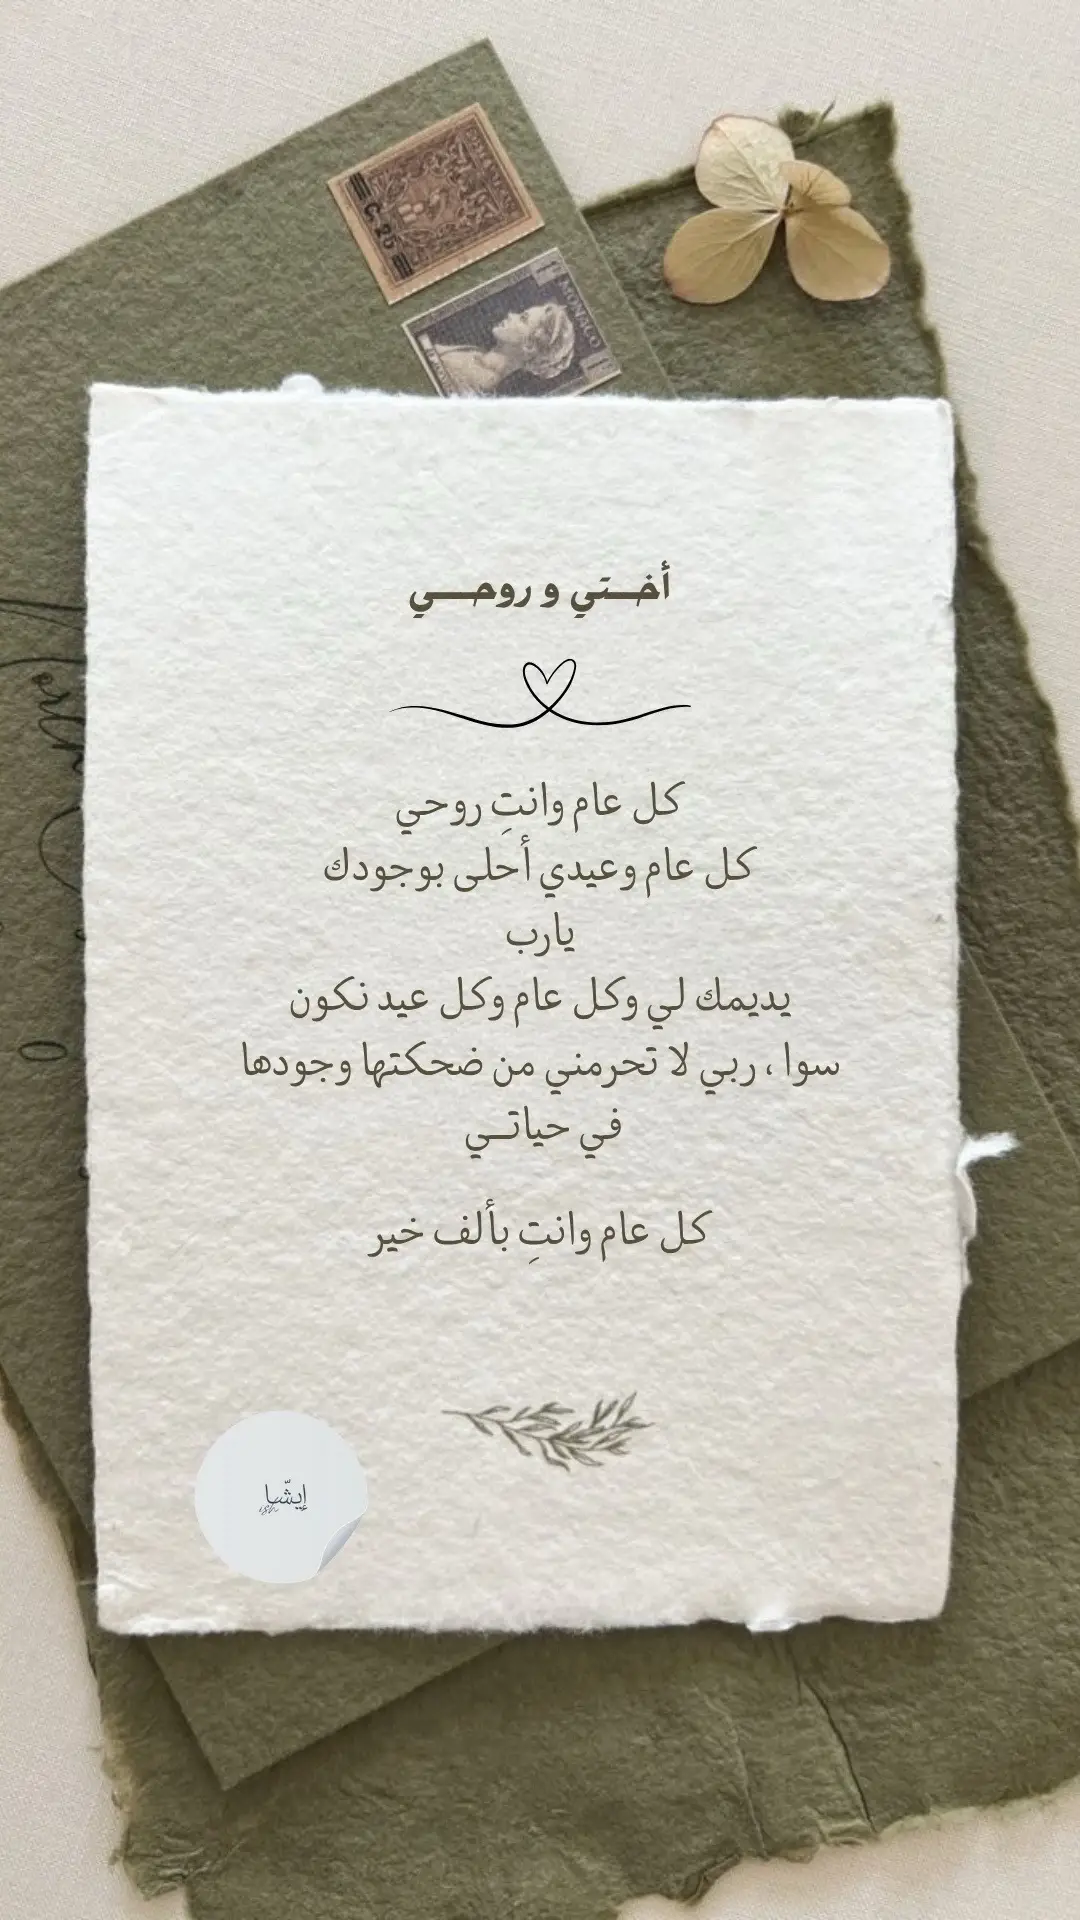 C. 25
MONACO
أخـــتي و روحـــــي
كل عام وانتِ روحي
كل عام وعيدي أحلى بوجودك
يارب
يديمك لي وكل عام وكل عيد نكون
سوا ، ربي لا تحرمني من ضحكتها وجودها
في حياتــي
كل عام وانتِ بألف خير
إيشّا